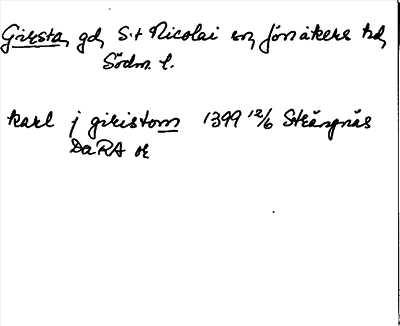 Girsta, gd, S:t Nicolai sn, Jönåkers hd,
Södm. l.
karl j giristom 1399 12/6 Strängnäs
DaRA or